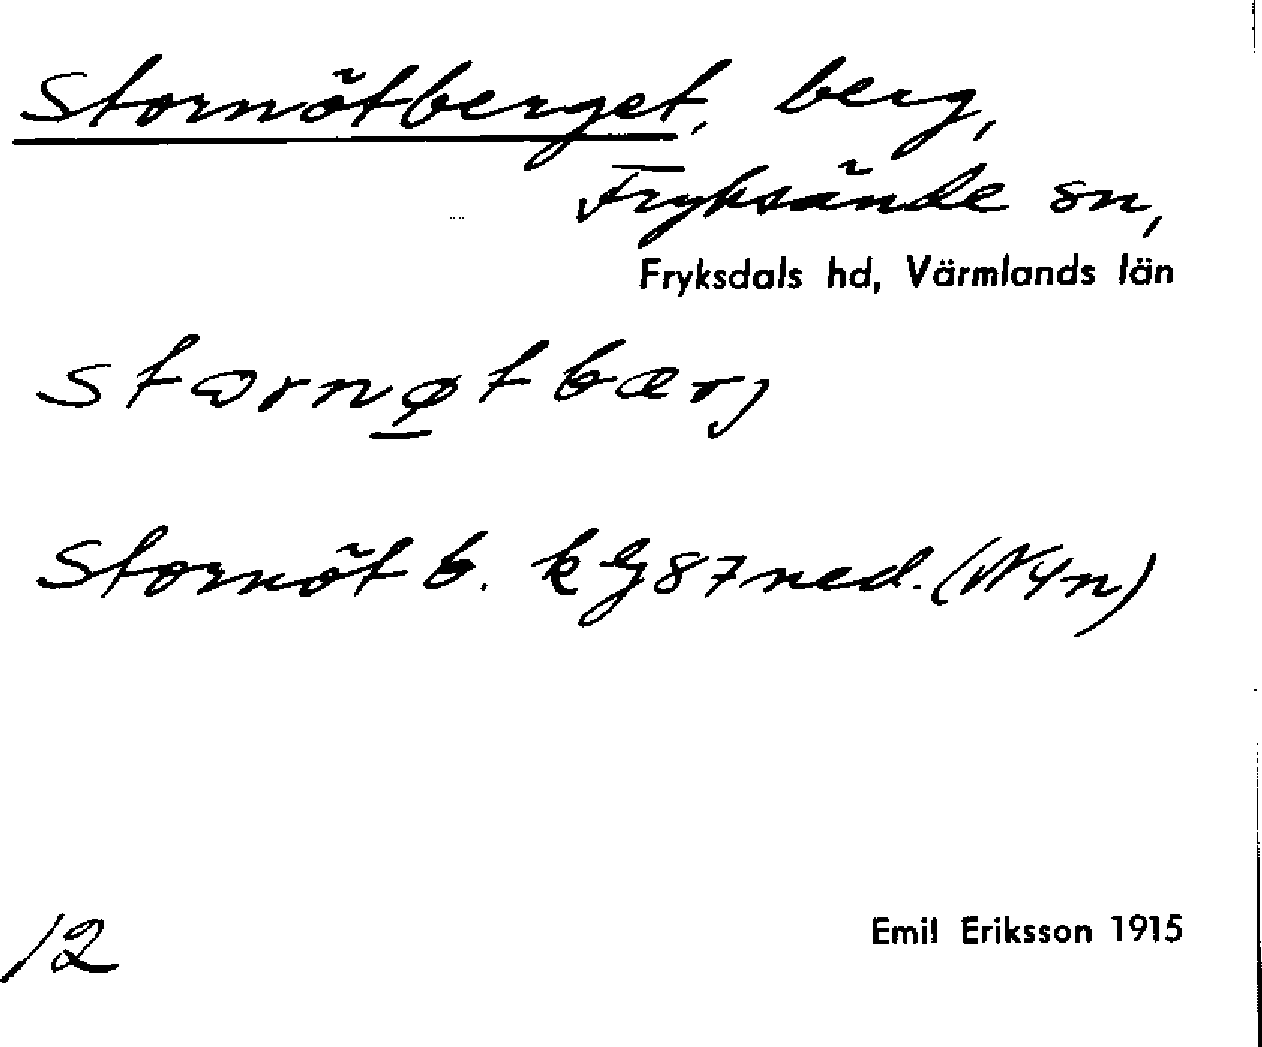 Stornötberget, berg,
Fryksände sn,
Fryksdals hd, Värmlands län
stornøtbærj
Stornöt b. k G 87 ned. (NYn)
12
Emil Eriksson 1915